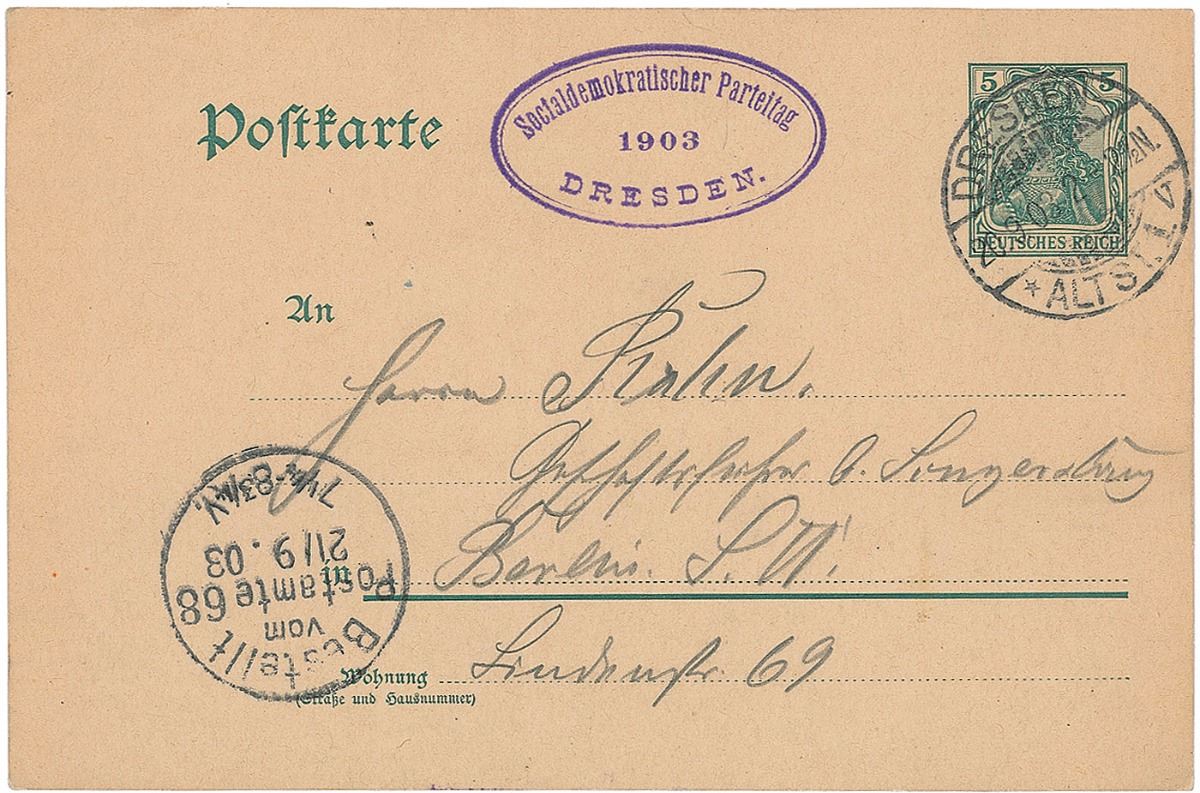 Postkarte
Socialdemokratischer Parteitag
1903
DRESDEN.
5 5
DEUTSCHES REICH
DRESDEN
20.9.03
* ALTST. 1. v
An
Herrn Kahn.
Berlin. S.W.
in
Lindenstr. 69
Wohnung
(Straße und Hausnummer)
Bestellt
vom
Postamte 68
21/9.03
7¼-8¾V.